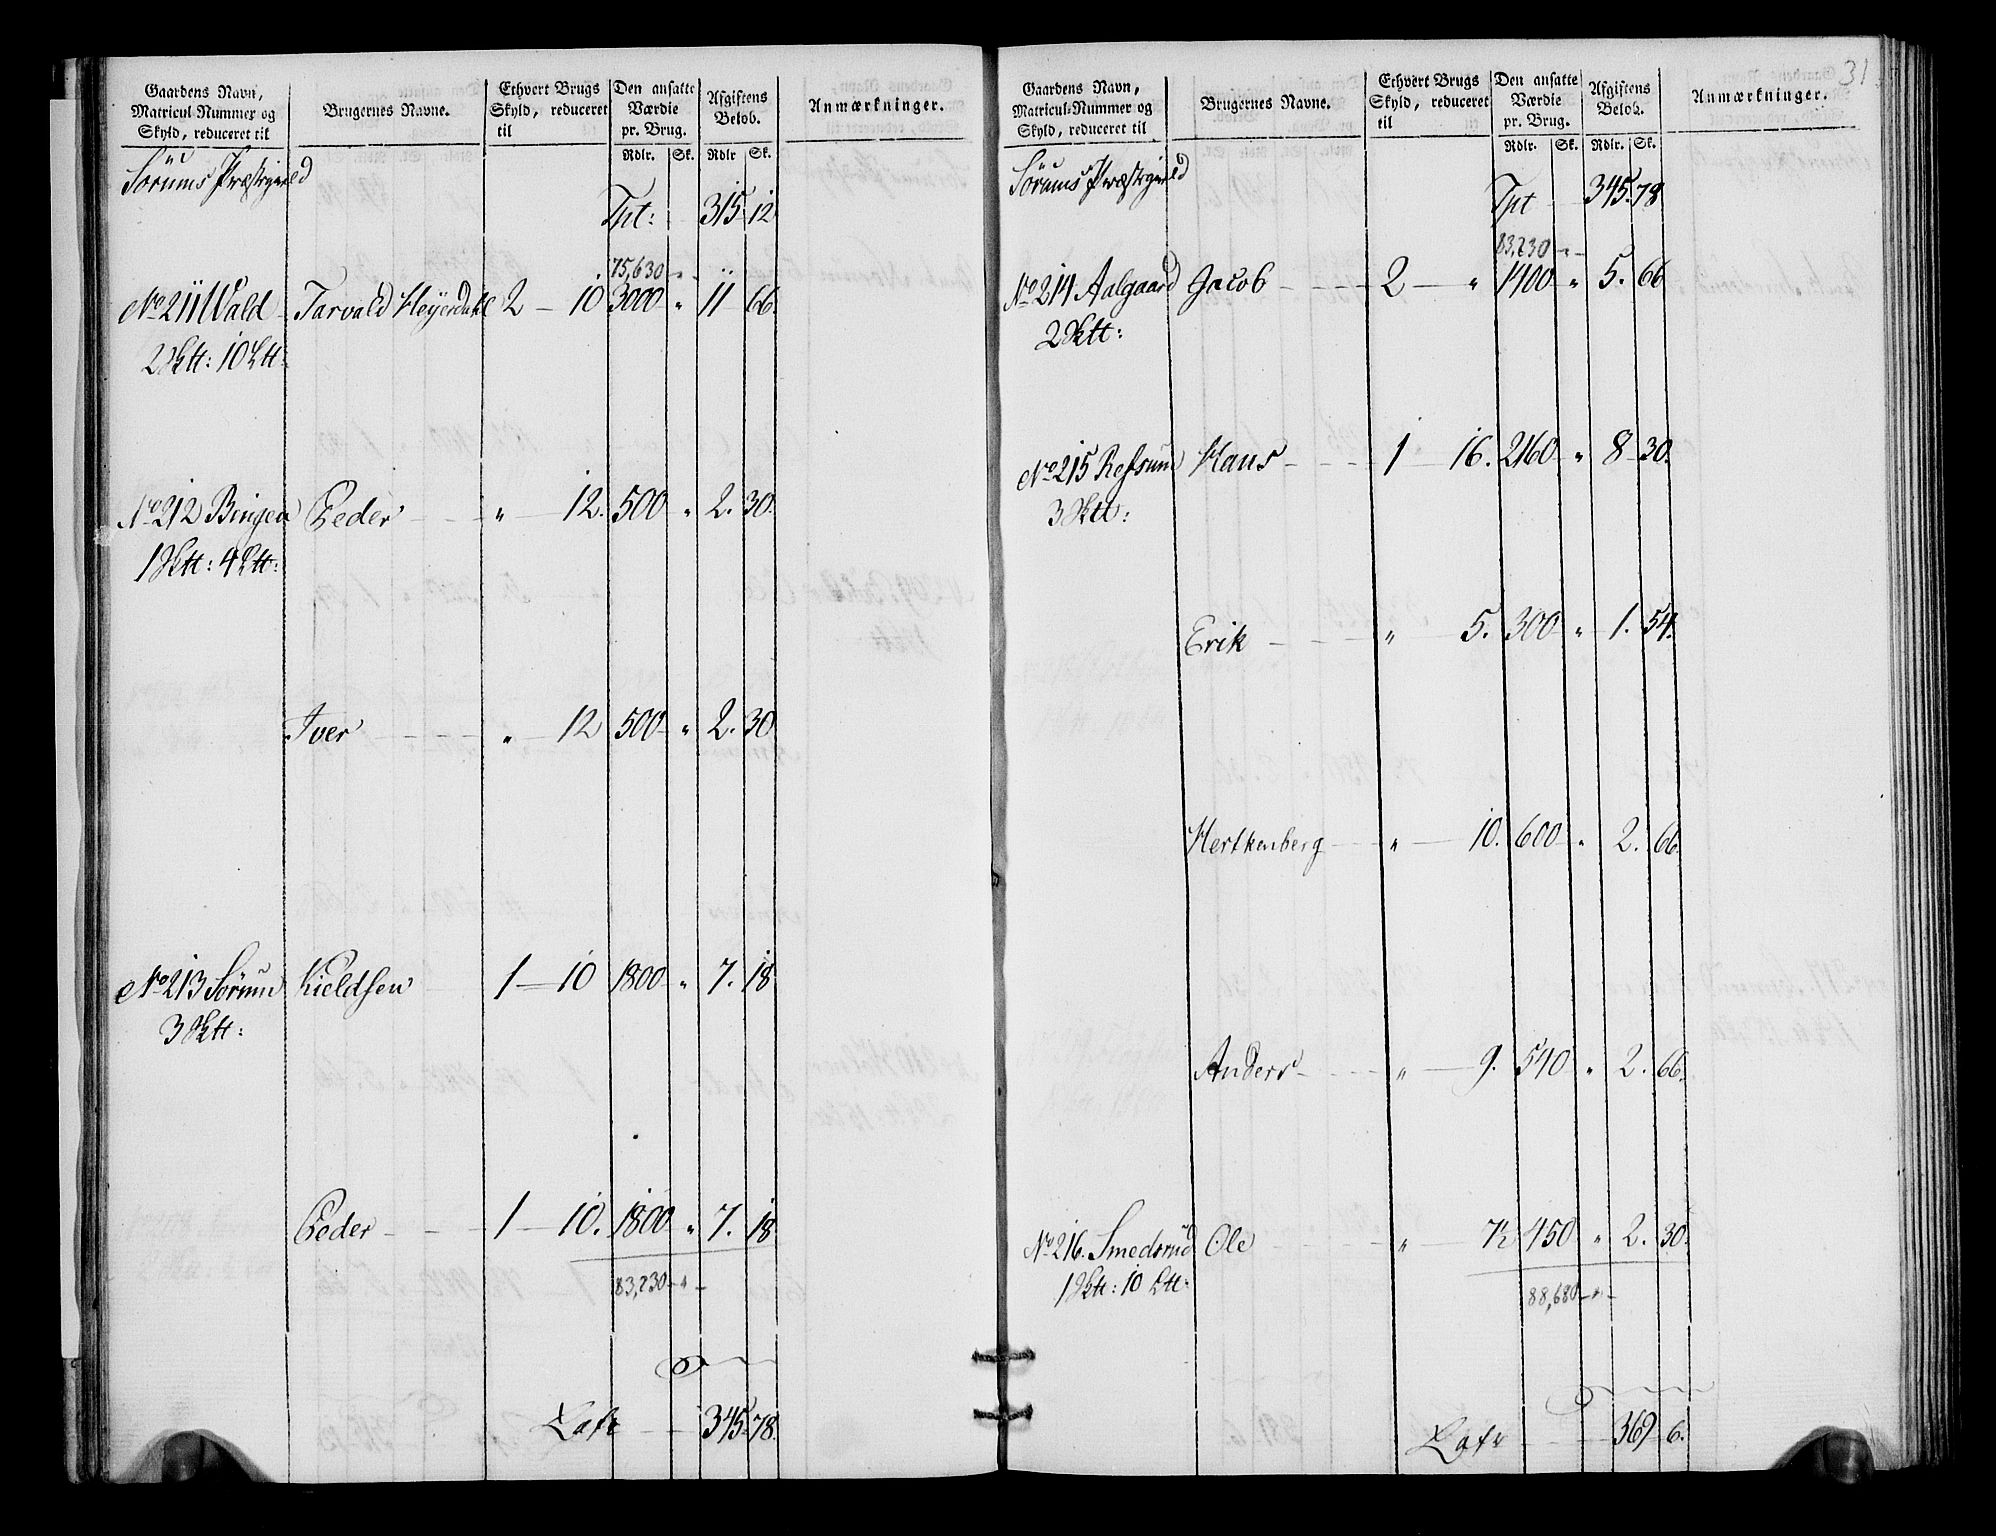 Gaardens Navn, Matricul-Nummer og Skyld, reduceret til | Brugernes Navne. | Ethvert Brugs Skyld, reduceret til | Den ansatte Værdie pr. Brug. Rdlr. Sk. | Afgiftens Beløb. Rdlr Sk. | Anmærkninger.
Sørums Præstegield
Tpt: 315. 12
75,630 - " -
No 211 Wald Tarvald Heyerdahl 2 - 10. 3000 " 11 66.
2 Sktt: 10 Ltt:
No 212 Bingen Peder " 12. 500 " 2. 30.
1 Sktt: 4 Ltt:
Iver " 12 500 " 2. 30
No 213 Sørum Kieldsen 1 - 10 1800 " 7. 18
3 Sktt:
Peder 1 - 10. 1800 " 7. 18
83,230 - " -
Latr 345. 78.
31
Gaardens Navn, Matricul-Nummer og Skyld, reduceret til | Brugernes Navne. | Ethvert Brugs Skyld, reduceret til | Den ansatte Værdie pr. Brug. Rdlr. Sk. | Afgiftens Beløb. Rdlr. Sk. | Anmærkninger.
Sørums Præstegield
Tpt 345. 78
83,230 - " -
No 214 Aalgaard Jacob 2 " 1400 " 5. 66
2 Sktt:
No 215 Refsum Hans 1 16. 2160 " 8 30.
3 Sktt:
Erik " 5. 300 " 1. 54.
Herthenberg " 10. 600 " 2. 66.
Anders " 9. 540 " 2. 66.
No 216. Smedsrud Ole " 7½ 450 " 2. 30.
1 Sktt: 10 Ltt:
88,680 - " -
Latr 369 6.